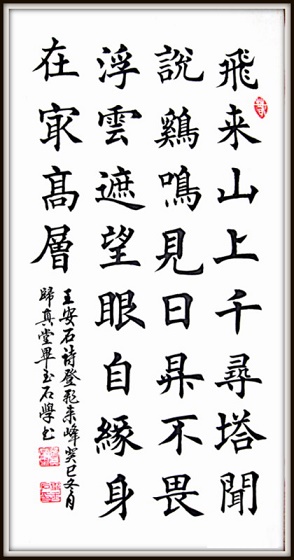 飛来山上千尋塔聞
說鷄鳴見日昇不畏
浮雲遮望眼自緣身
在冣髙層
王安石詩登飛来峰癸巳冬月
歸真堂畢玉石學书